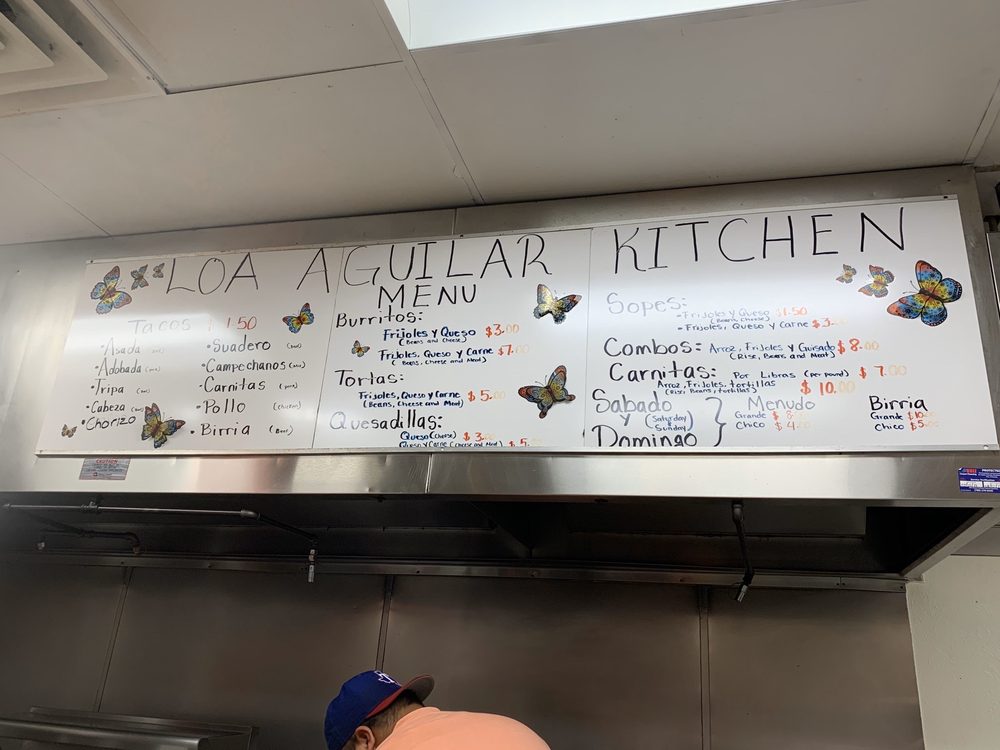 LOA AGUILAR KITCHEN
MENU
Tacos $1.50
• Asada
• Adobada
• Tripa
• Cabeza
• Chorizo
• Suadero
• Campechanos
• Carnitas
• Pollo (chicken)
• Birria (Beef)
Burritos:
Frijoles y Queso $3.00
(Beans and Cheese)
Frijoles, Queso y Carne $7.00
(Beans, Cheese and Meat)
Tortas:
Frijoles, Queso y Carne $5.00
(Beans, Cheese and Meat)
Quesadillas:
Queso (Cheese) $3.00
Queso y Carne (Cheese and Meat) $5.
Sopes:
- Frijoles y Queso $1.50
(Beans, Cheese)
- Frijoles, Queso y Carne $3.00
Combos: Arroz, Frijoles y Guisado $8.00
(Rise, Beans, and Meat)
Carnitas: Por Libras (per pound) $7.00
Arroz, Frijoles, tortillas $10.00
(Rise, Beans, tortillas)
Sabado
y (Saturday
y Sunday)
Domingo
Menudo
Grande $8.00
Chico $4.00
Birria
Grande $10.00
Chico $5.00
CAUTION